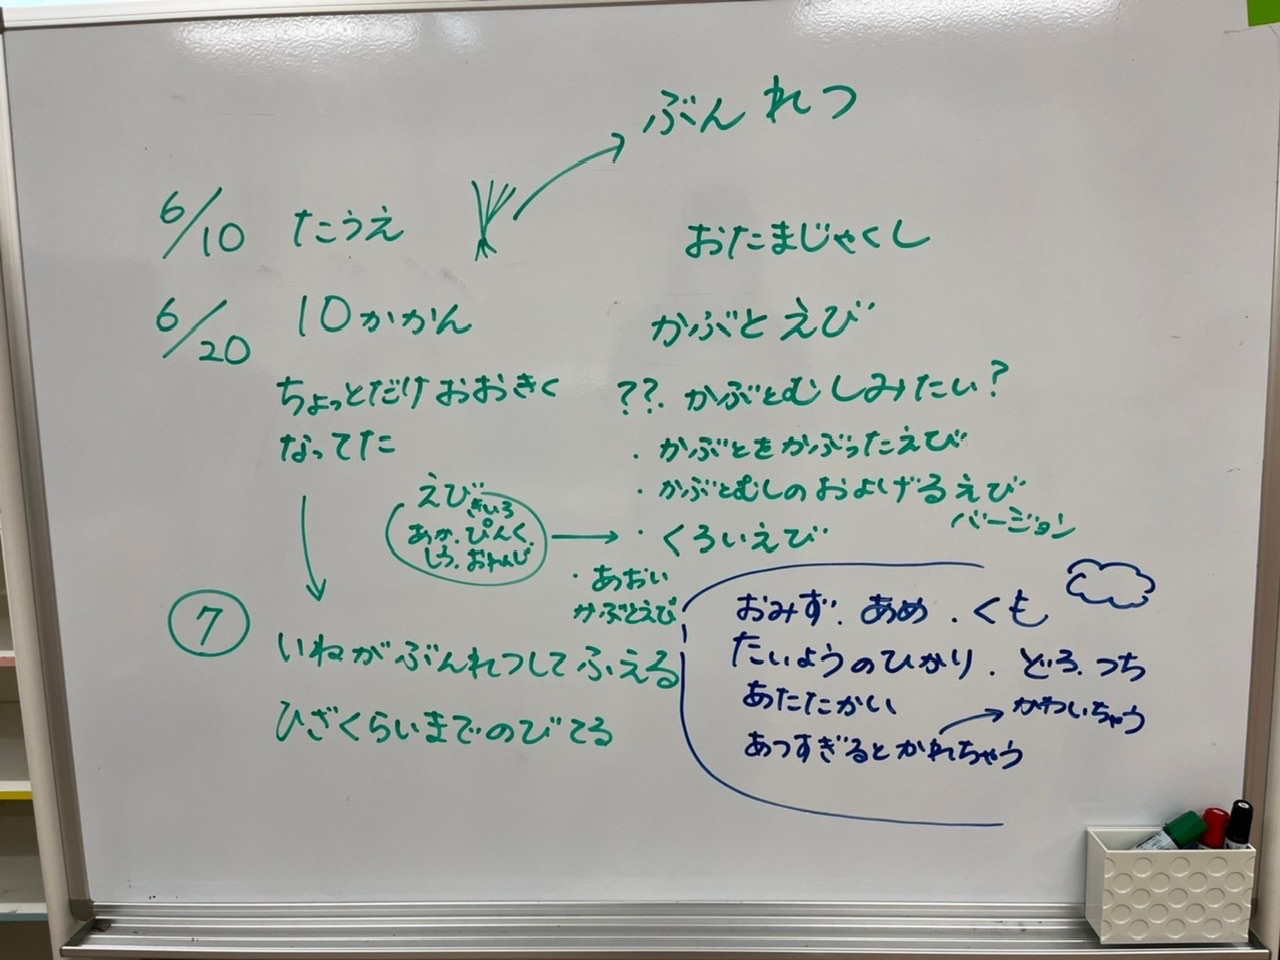 ぶんれつ
6/10 たうえ
おたまじゃくし
6/20 10かかん
かぶとえび
ちょっとだけおおきく
なってた
??. かぶとむしみたい?
・かぶとをかぶったえび
・かぶとむしのおよげるえび
バージョン
えび
きいろ
あか.ぴんく.
しろ.おれんじ
・くろいえび
・あおい
かぶとえび
7
いねがぶんれつしてふえる
ひざくらいまでのびてる
おみず.あめ.くも
たいようのひかり.どろ.つち
あたたかい
かわいちゃう
あつすぎるとかれちゃう